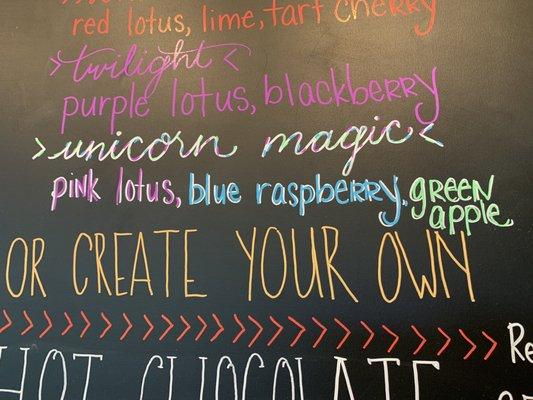 red lotus, lime, tart cherry
>twilight<
purple lotus, blackberry
>unicorn magic<
pink lotus, blue raspberry, green apple
OR CREATE YOUR OWN
>>>>>>>>>>>>>>>>>>>>>>>>
HOT CHOCOLATE